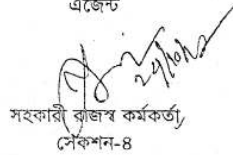 এজেন্ট
সহকারী রাজস্ব কর্মকর্তা,
সেকশন-৪